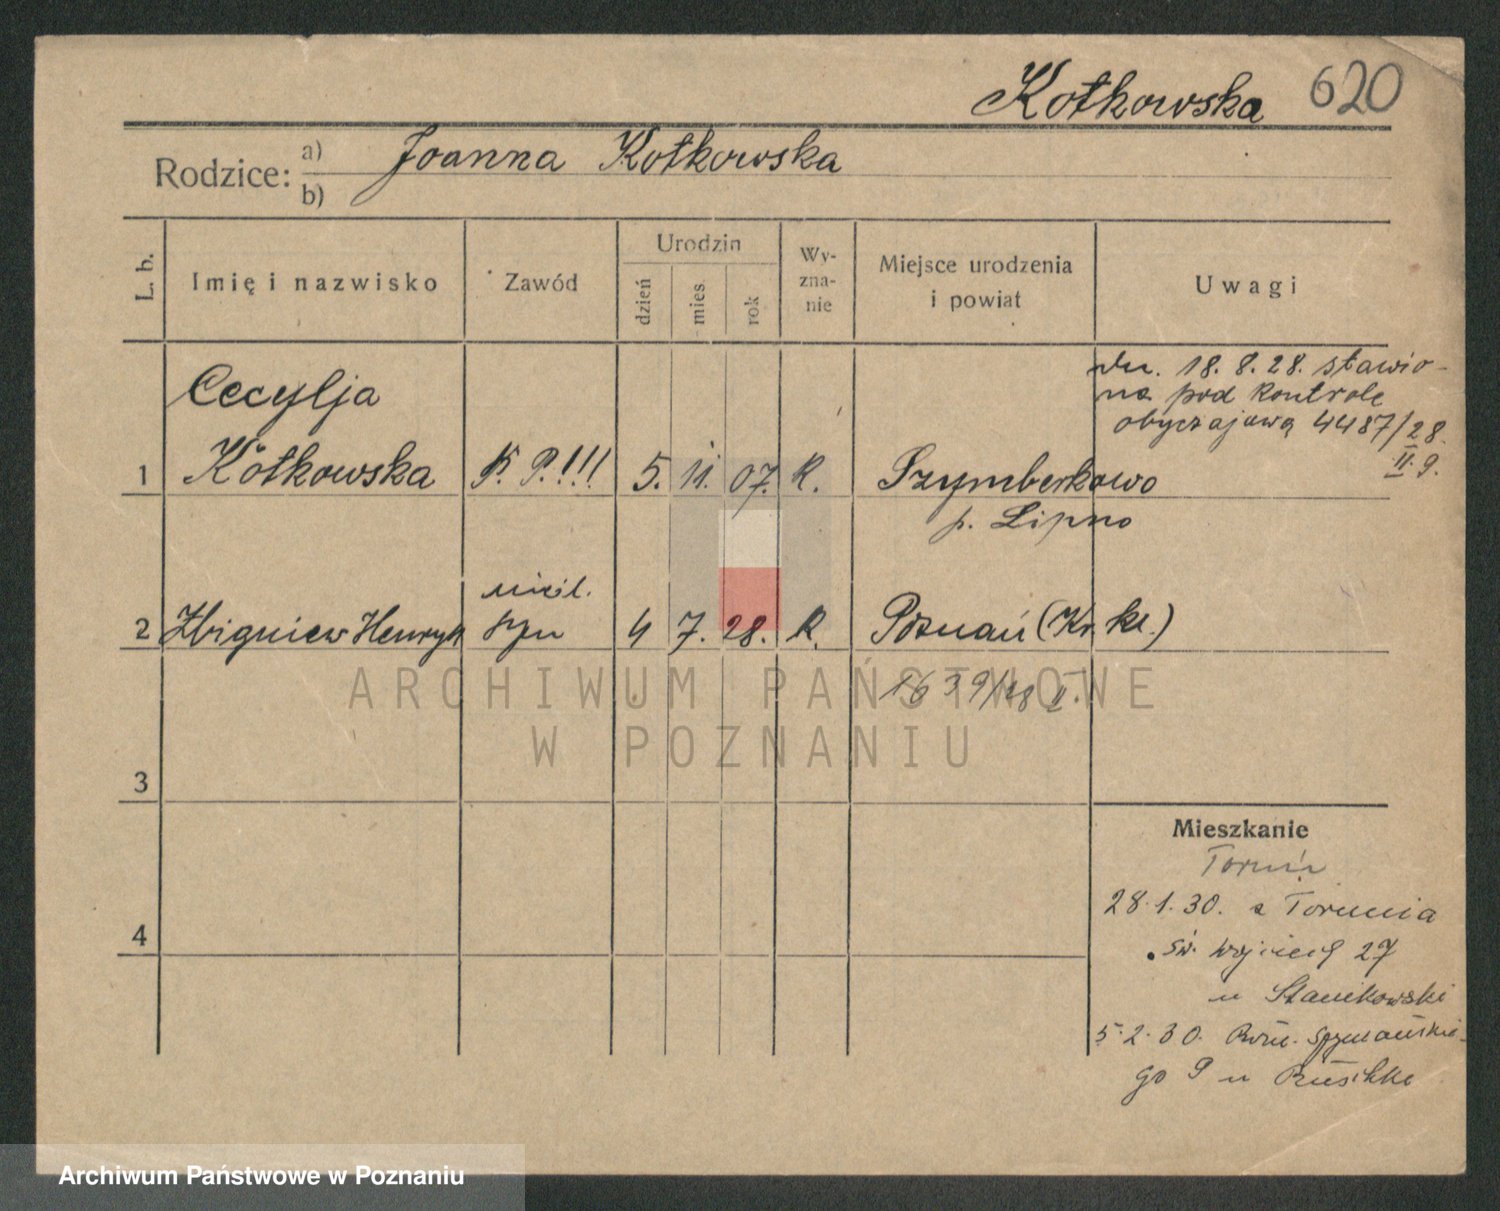 Kotkowska 620
Rodzice: a) Joanna Kotkowska
b)
L. b. Imię i nazwisko Zawód Urodzin dzień mies. rok Wy-zna-nie Miejsce urodzenia i powiat Uwagi
dn. 18. 8. 28. stawio-
na pod kontrole
obyczajową 4487/28.
II. 9.
Cecylja
1 Kotkowska P.!!! 5. 11. 07. K. Szymberkowo
p. Lipno
nieśl.
2 Zbigniew Henryk syn 4 7. 28. K. Poznań (Kr. kl.)
1639/28 II.
ARCHIWUM PAŃSTWOWE
W POZNANIU
3
Mieszkanie
Toruń
28.1.30. z Torunia
4
św. Wojciech 27
u Stanikowski
5.2.30. Szymańskie-
go 9 u
Archiwum Państwowe w Poznaniu